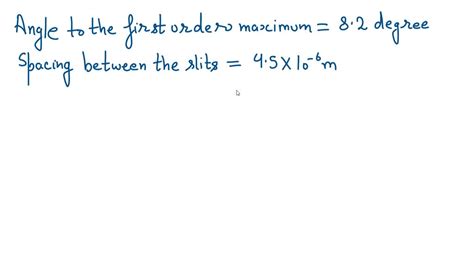 Angle to the first orders maximum = 8.2 degree
Spacing between the slits = 4.5 X 10⁻⁶ m